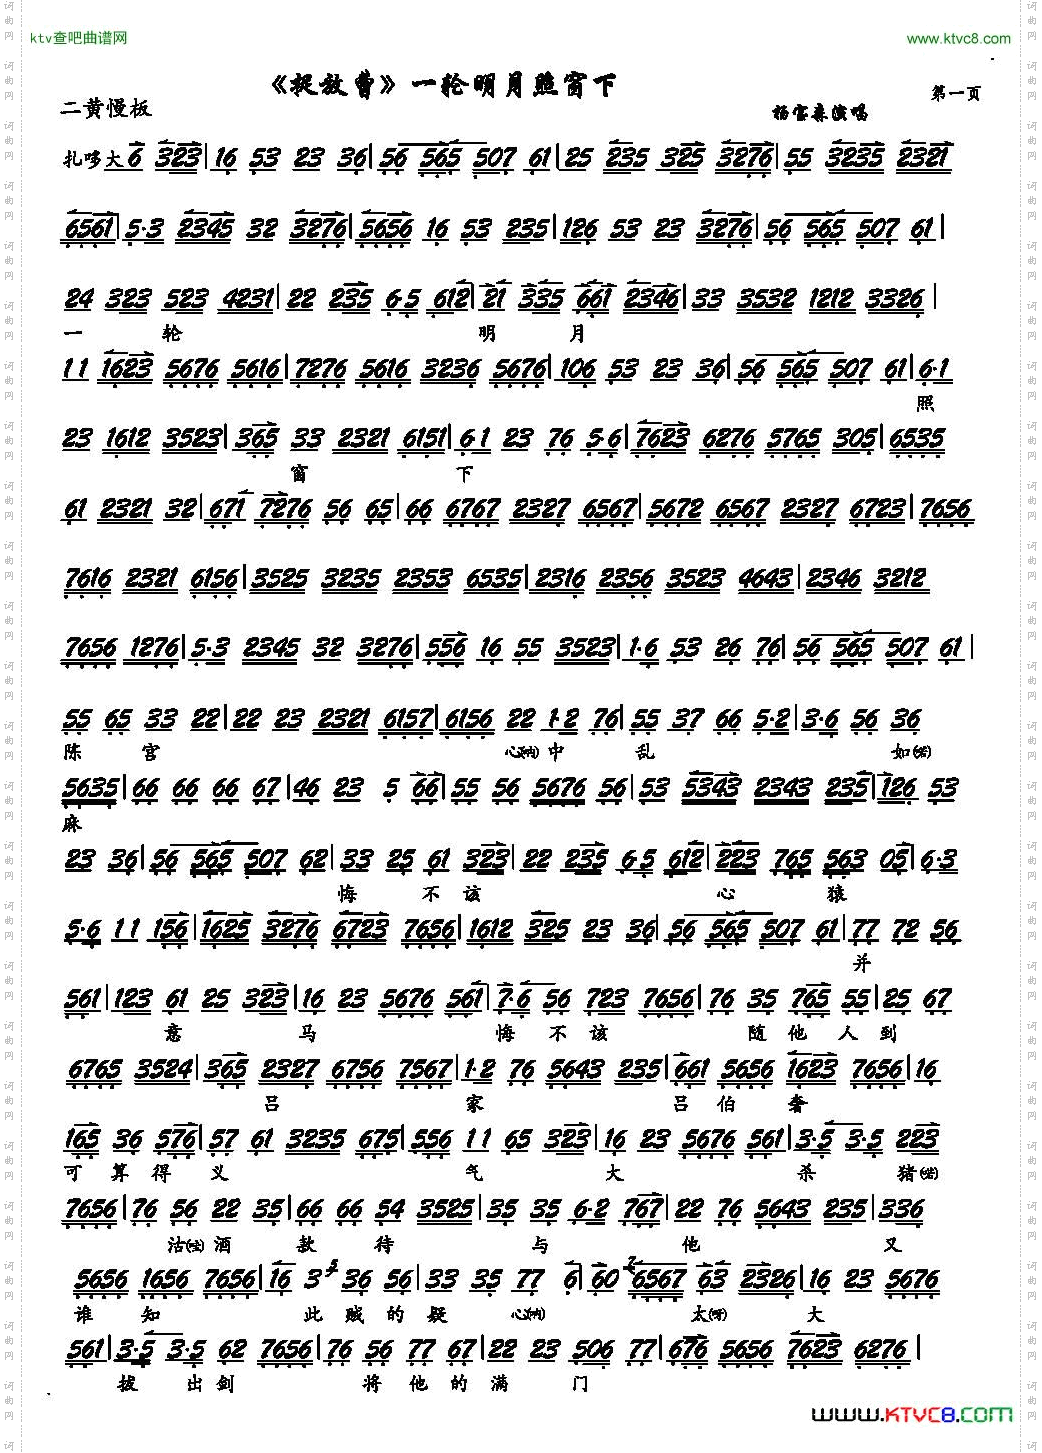 ktv查吧曲谱网
www.ktvc8.com
《捉放曹》一轮明月照窗下
第一页
二黄慢板
杨宝森演唱
扎哆大6 323|16 53 23 36|56 565 507 61|25 235 325 3276|55 3235 2321
6561|5·3 2345 32 3276|5656 16 53 235|126 53 23 3276|56 565 507 61|
24 323 523 4231|22 235 6·5 612|21 335 661 2346|33 3532 1212 3326|
一 轮 明 月
11 1623 5676 5616|7276 5616 3236 5676|106 53 23 36|56 565 507 61|6·1
照
23 1612 3523|365 33 2321 6151|6·1 23 76 5·6|7623 6276 5765 305|6535
窗 下
61 2321 32|671 7276 56 65|66 6767 2327 6567|5672 6567 2327 6723|7656
7616 2321 6156|3525 3235 2353 6535|2316 2356 3523 4643|2346 3212
7656 1276|5·3 2345 32 3276|556 16 55 3523|1·6 53 26 76|56 565 507 61|
55 65 33 22|22 23 2321 6157|6156 22 1·2 76|55 37 66 5·2|3·6 56 36
陈 宫 心(呐)中 乱 如(喏)
5635|66 66 66 67|46 23 5 66|55 56 5676 56|53 5343 2343 235|126 53
麻
23 36|56 565 507 62|33 25 61 323|22 235 6·5 612|223 765 563 05|6·3
悔 不 该 心 猿
5·6 11 156|1625 3276 6723 7656|1612 325 23 36|56 565 507 61|77 72 56
并
561|123 61 25 323|16 23 5676 561|7·6 56 723 7656|76 35 765 55|25 67
意 马 悔 不 该 随 他 人 到
6765 3524|365 2327 6756 7567|1·2 76 5643 235|661 5656 1623 7656|16
吕 家 吕 伯 奢
165 36 576|57 61 3235 675|556 11 65 323|16 23 5676 561|3·5 3·5 223
可 算 得 义 气 大 杀 猪(喏)
7656|76 56 22 35|66 66 54 3525|35 35 6·2 767|22 76 5643 235|336
沽(哇)酒 款 待 与 他 又
5656 1656 7656|16 3 5 36 56|33 35 77 6|60 2 6567 63 2326|16 23 5676
谁 知 此 贼 的 疑 心(呐) 太(呀) 大
561|3·5 3·5 62 7656|76 56 77 67|22 23 506 77|676 5656 7623 6276|
拔 出 剑 将 他 的 满 门
www.KTVC8.COM